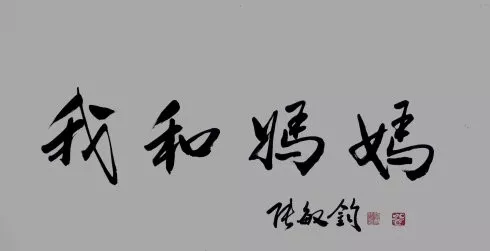 我和妈妈
张敏钧